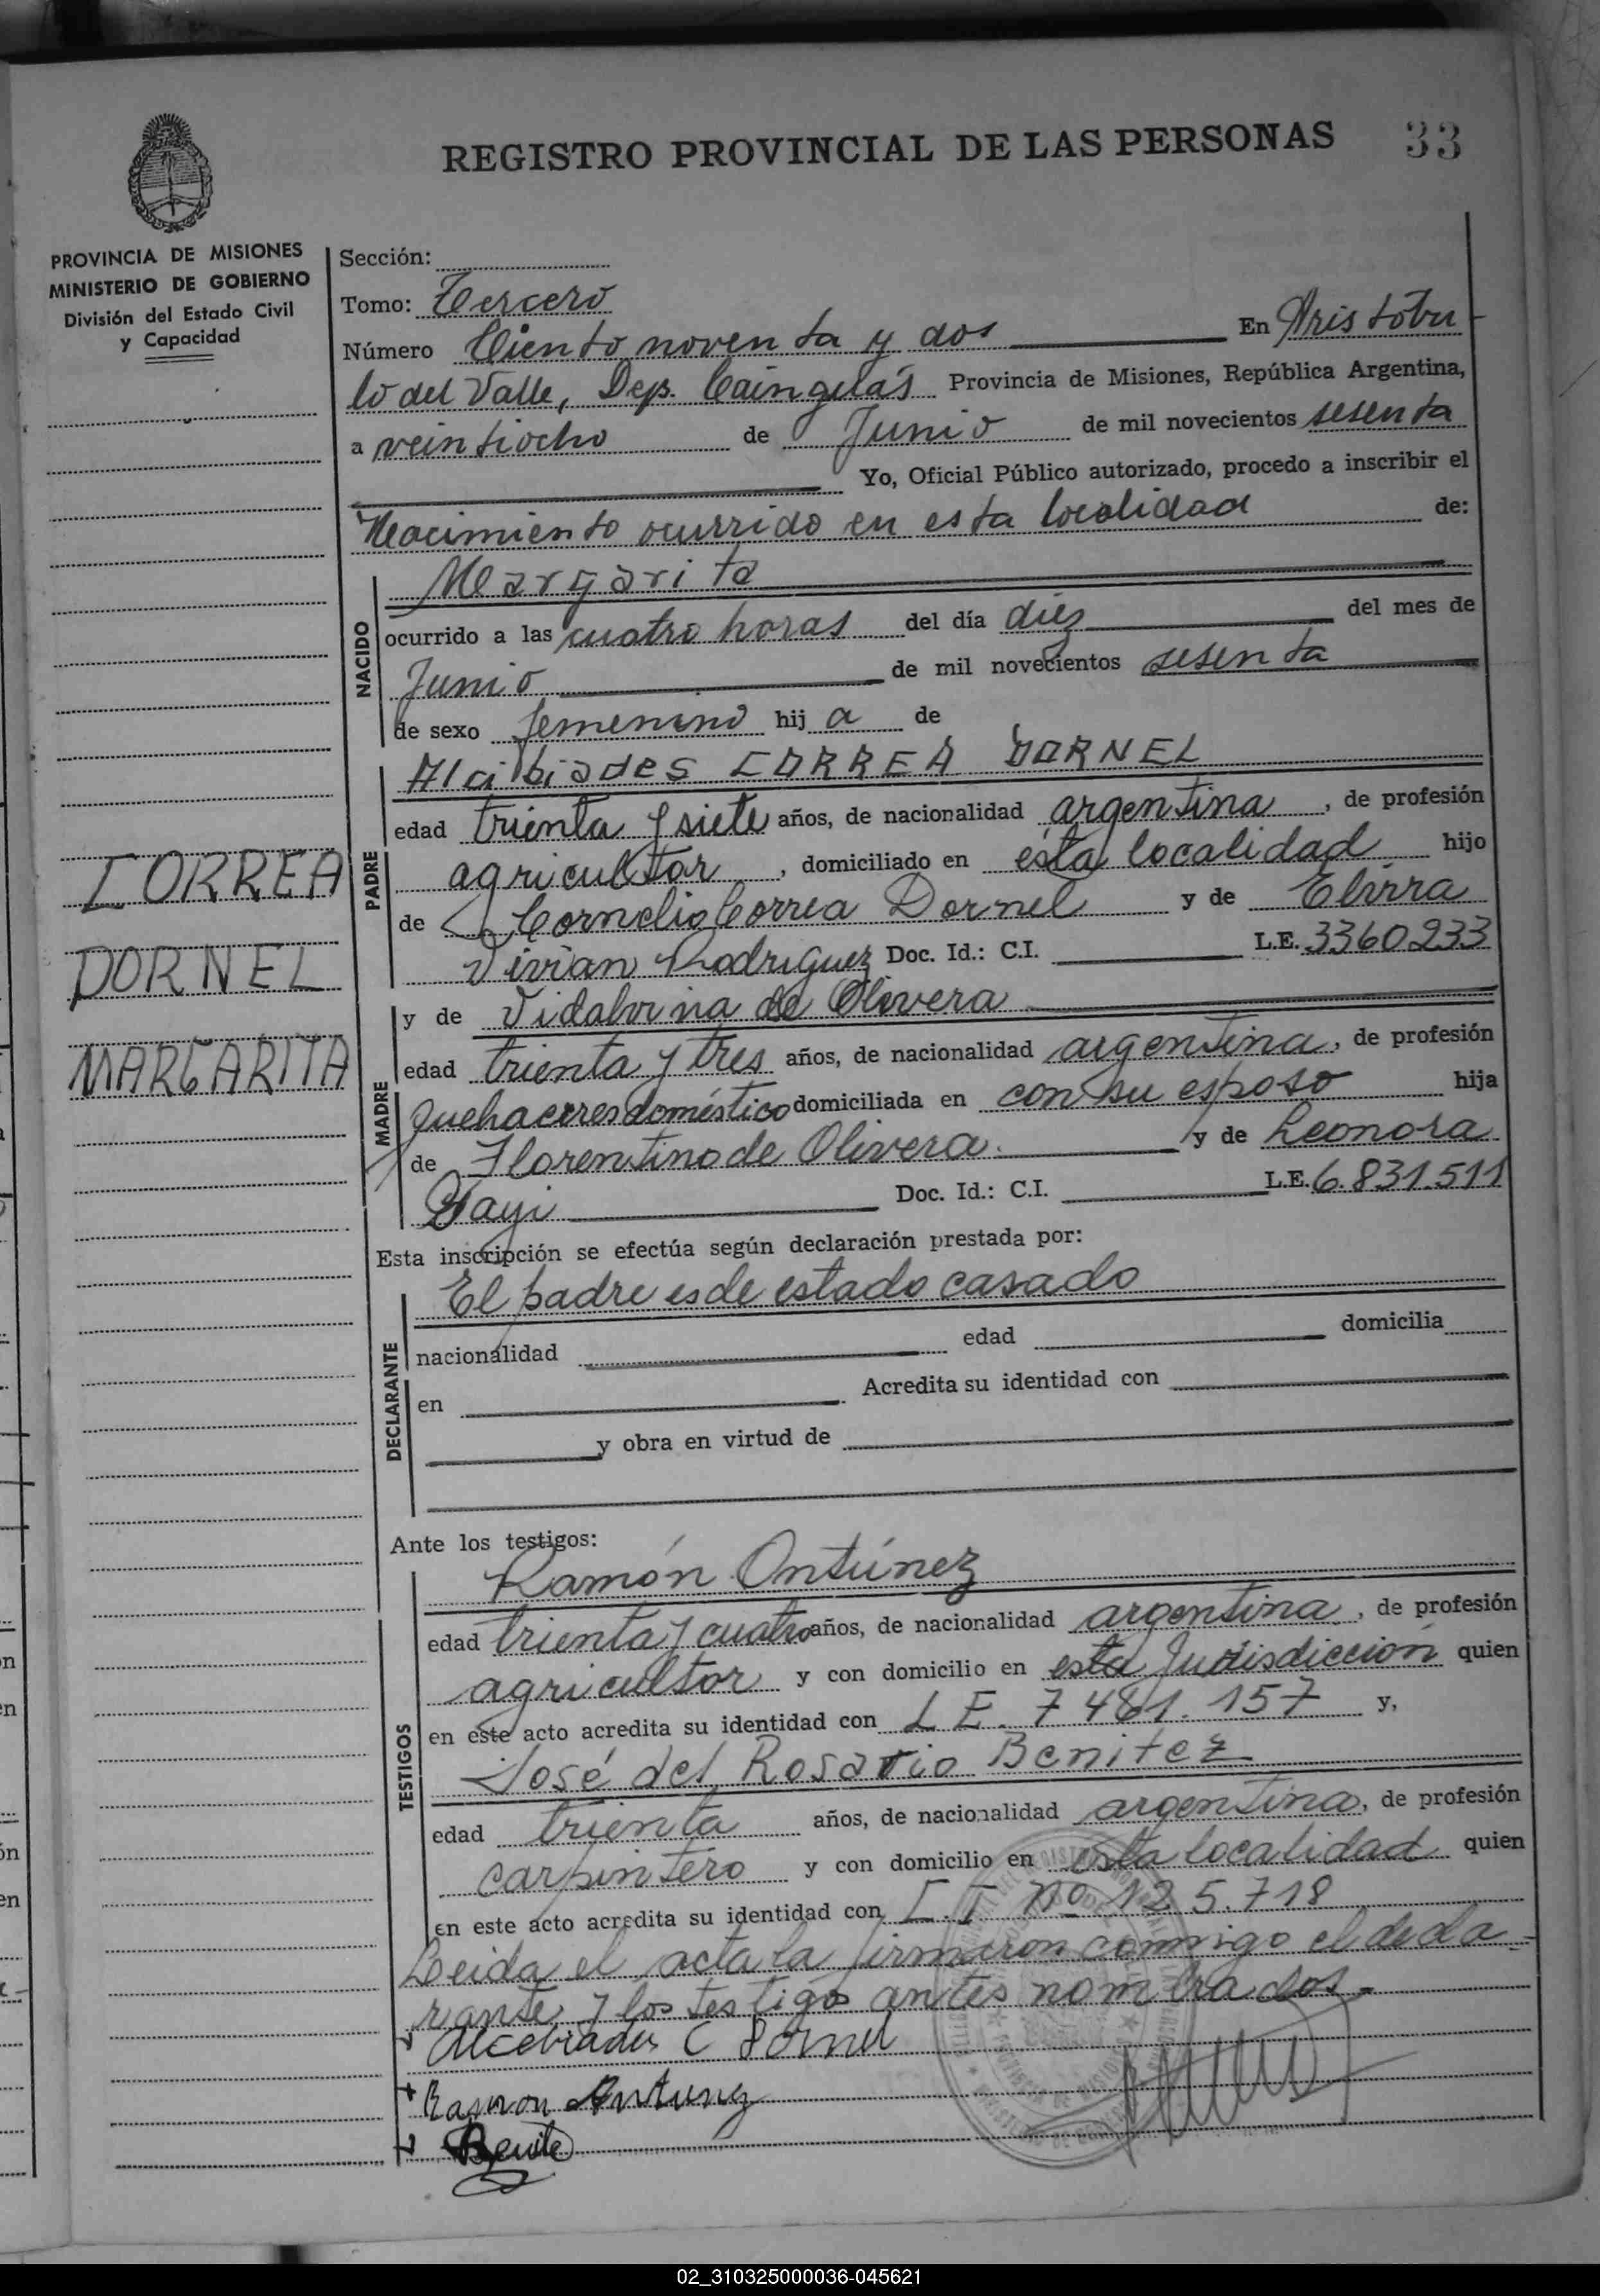 REGISTRO PROVINCIAL DE LAS PERSONAS 33
PROVINCIA DE MISIONES
MINISTERIO DE GOBIERNO
División del Estado Civil
y Capacidad
CORREA
DORNEL
MARGARITA
Sección:
Tomo: Tercero
Número Ciento noventa y dos En Aristóbu
lo del Valle, Dep. Cainguás Provincia de Misiones, República Argentina,
a veintiocho de Junio de mil novecientos sesenta
Yo, Oficial Público autorizado, procedo a inscribir el
Nacimiento ocurrido en esta localidad de:
NACIDO
Margarita
ocurrido a las cuatro horas del día diez del mes de
Junio de mil novecientos sesenta
de sexo femenino hij a de
PADRE
Alcibiades CORREA DORNEL
edad trienta y siete años, de nacionalidad argentina, de profesión
agricultor, domiciliado en esta localidad hijo
de Cornelio Correa Dornel y de Elvira
Vivian Rodriguez Doc. Id.: C.I. L.E. 3360233
MADRE
y de Vidalvina de Olivera
edad trienta y tres años, de nacionalidad argentina, de profesión
quehaceres doméstico domiciliada en con su esposo hija
de Florentino de Olivera. y de Leonora
Doc. Id.: C.I. L.E. 6.831.511
Esta inscripción se efectúa según declaración prestada por:
DECLARANTE
El padre es de estado casado
nacionalidad edad domicilia
en Acredita su identidad con
y obra en virtud de
Ante los testigos:
TESTIGOS
Ramón Ontúnez
edad trienta y cuatro años, de nacionalidad argentina, de profesión
agricultor y con domicilio en esta Jurisdiccion quien
en este acto acredita su identidad con L E. 7 481. 157 y,
José del Rosario Benitez
edad trienta años, de nacionalidad argentina, de profesión
carpintero y con domicilio en esta localidad quien
en este acto acredita su identidad con C.I nº 125.718
Leida el acta la firmaron conmigo el decla
rante, y los testigos antes nombrados.
Alcebiades C Dornel
Ramon Antunez
Benite
02_310325000036-045621